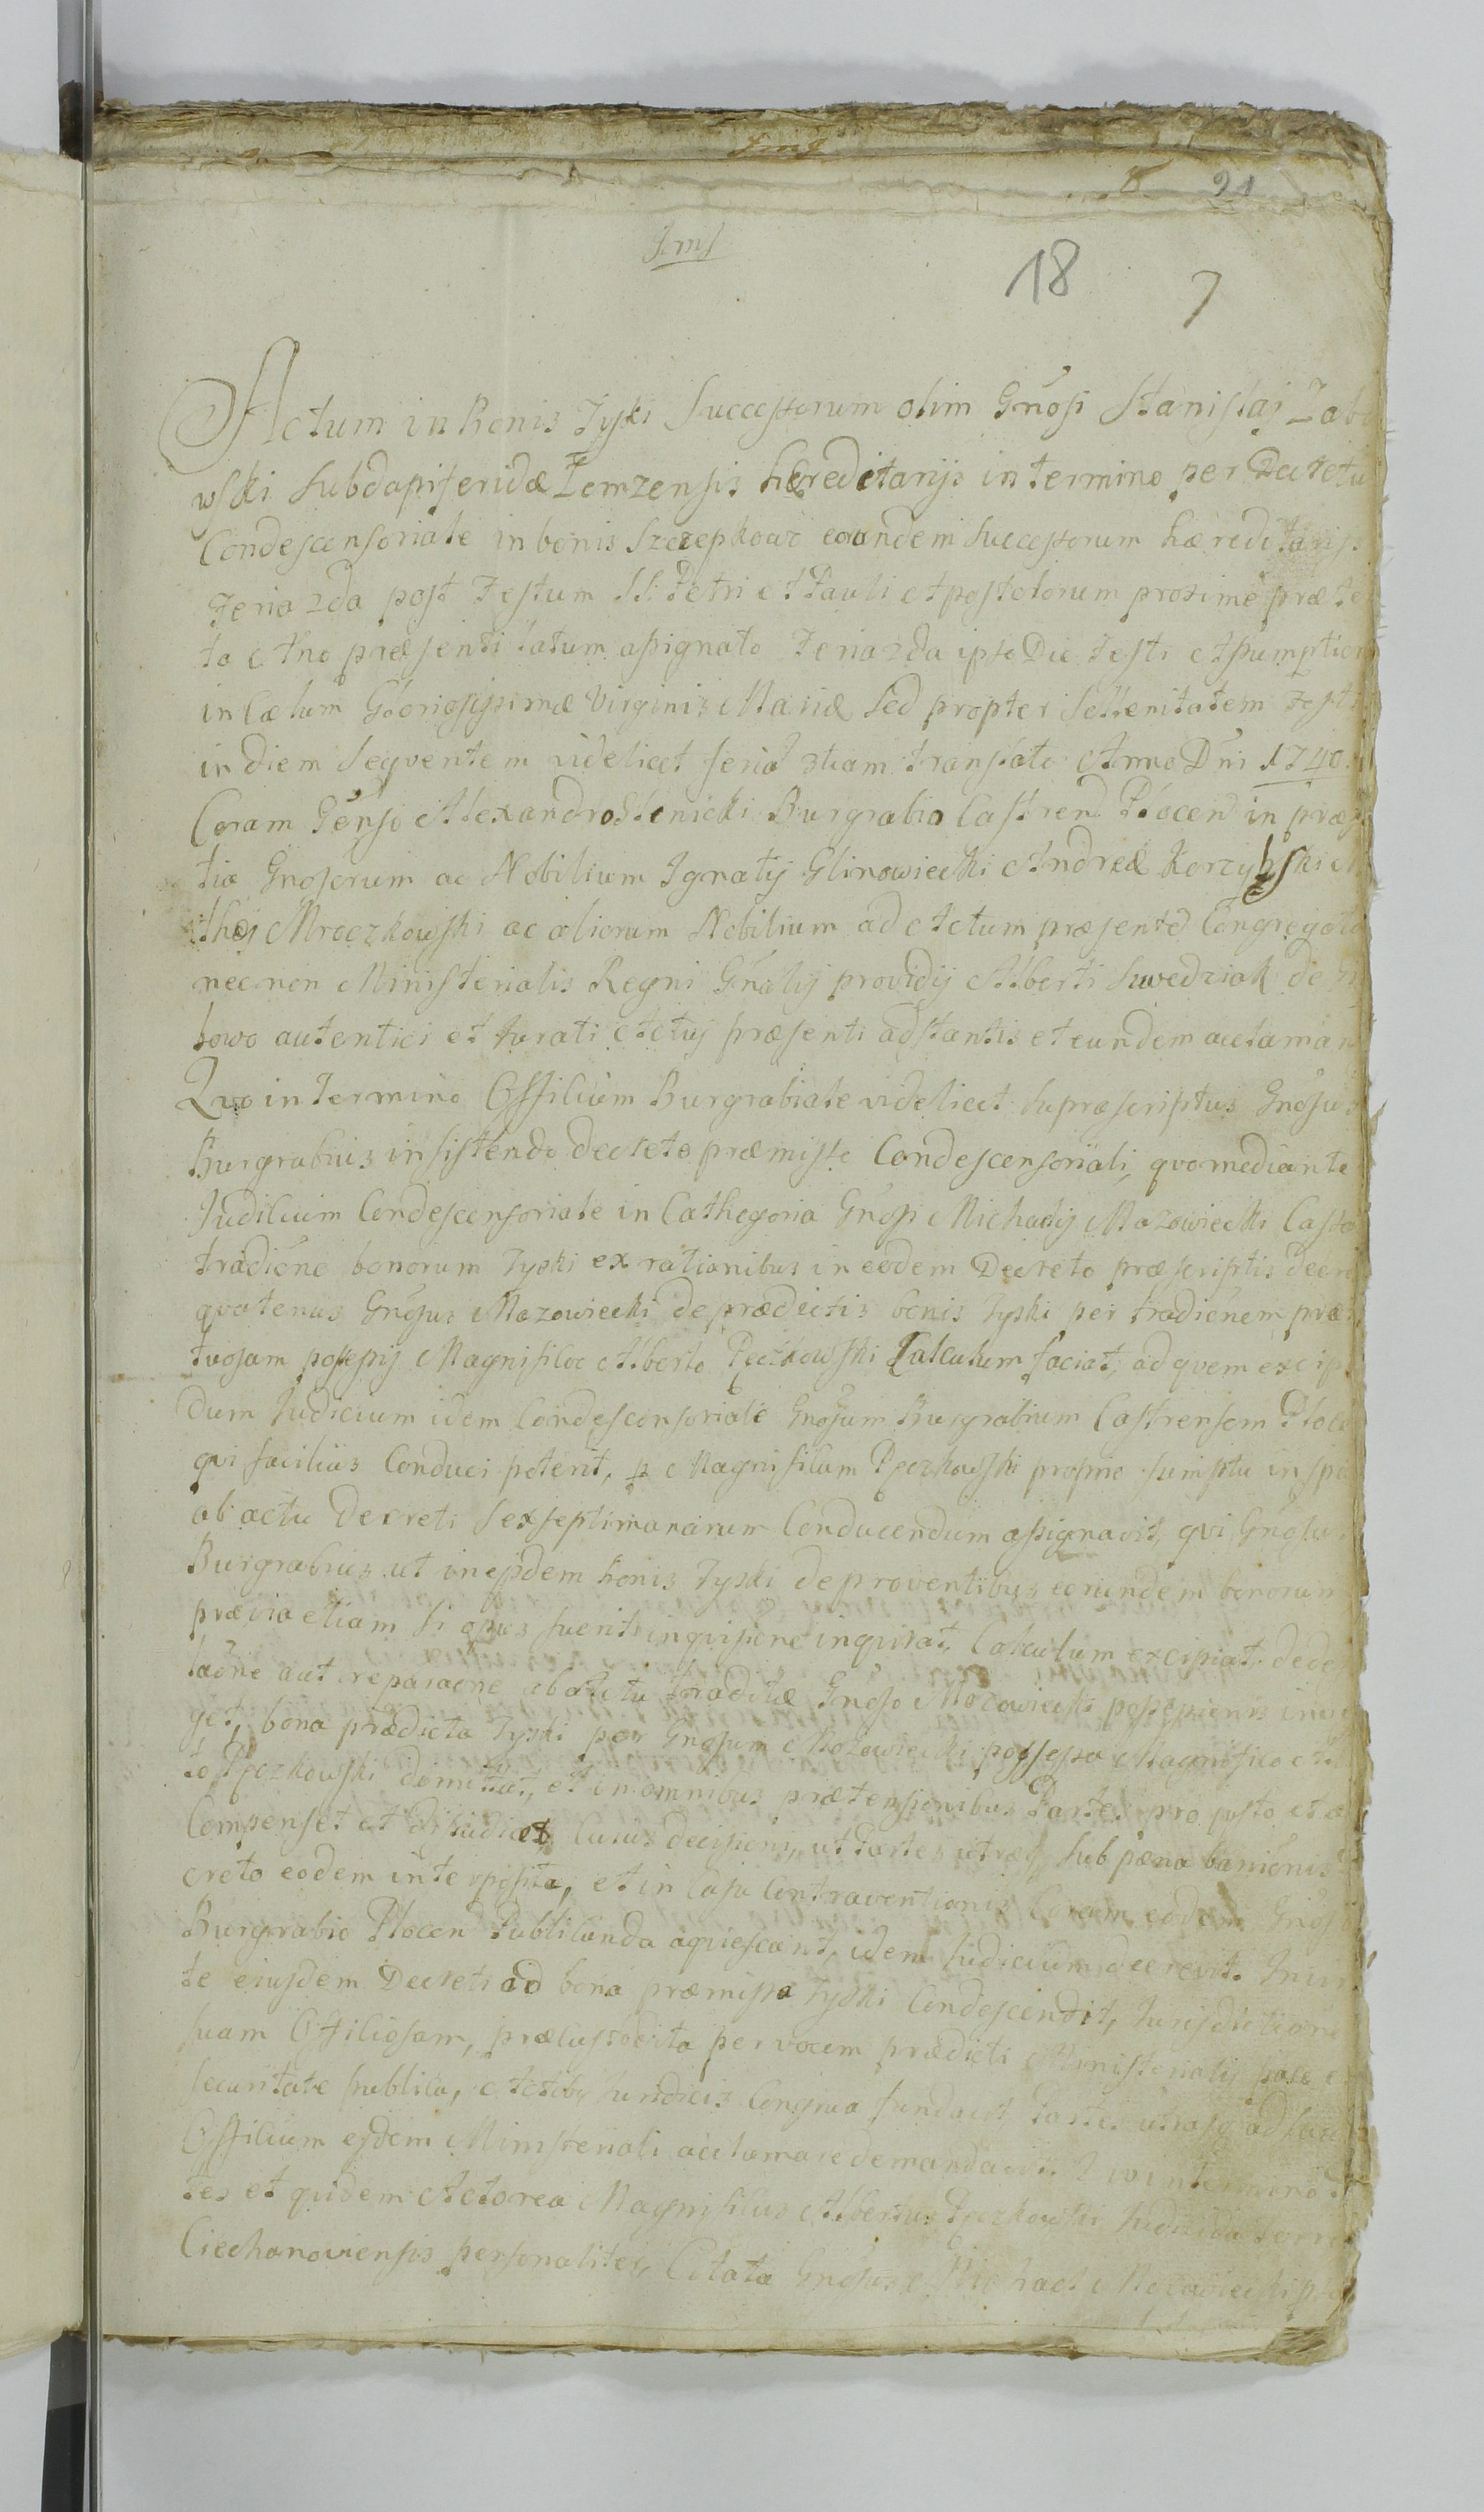 8 91
Jmſ
18 7
Actum in Bonis Tyski Successorum olim Gnosi Stanislai Zabo
wski Subdapiferidæ Łomzensis hæreditarijs in termino per Decretu
Condescensoriale in bonis Szczepkowo eorundem Successorum hæreditarijs
Feria 2da post Festum SS. Petri et Pauli Apostolorum proxime præte
to Actuo præsenti latum assignato Feria 2da ipso Die Festi Assumption
in Cælum Gloriosissimæ Virginis Mariæ sed propter Sollenitatem Festi
in diem sequentem videlicet feria 3tiam translato Anno Dni 1740.
Coram Genso Alexandro Slenicki Burgrabio Castren Plocen in præs
tia Gnosorum ac Nobilium Ignatij Glinowiecki Andreæ Korzybski
thei Mroczkowski ac aliorum Nobilium ad Actum præsente Congregato
nec non Ministerialis Regni Gnalij providij Alberti Swedziak de
kowo autentici et Jurati Actuj præsenti adstantis et eundem acclaman
Quo in Termino Officium Burgrabiale videlicet supræscriptus Gnosus
Burgrabius insistendo decreto præmisso Condescensoriali, quo mediante
Judicium Condescensoriale in Cathegoria Gnosi Michaelis Mazowiecki
tradicōne bonorum Tyski ex rationibus in eodem Decreto præscriptis
quatenus Gnosus Mazowiecki de prædictis bonis Tyski per tradicōnem
possessij Magnifico Alberto Pęczkowski Calculum faciat, ad quem excip
dum Judicium idem Condescensoriale Gnosum Burgrabium Castrensem Ploce
qui facilius Conduci poterit, p Magnificum Pęczkowski proprio sumptu in spa
ab actu Decreti sex septimanarum Conducendum assignavit, qui Gnosus
Burgrabius ut in ejsdem bonis Tyski de proventibus eorundem bonorum
prævia etiam si opus fuerit inquisicōne inquirat, Calculum excipiat, de
aut reparacōne ab Actu traditæ Gnoso Mazowiecki possessionis
get, bona prædicta Tyski per Gnosum Mazowiecki possessa Magnifico
to Pęczkowski dimittat, et in omnibus prætensionibus Partes pro justo et æ
Compenset et Dijudicet, Cuius decisioni, ut Partes utræq, sub pæna banicōnis
creto eodem interposita, et in Casu Contraventionis Coram eodem Gnoso
Burgrabio Plocen Publicanda aquiescant, idem Judicium decrevit.
te eiusdem Decreti ad bona præmissa Tyski Condescendit, Jurisdictione
suam Officiosam, per vocem prædicti Ministerialij pace
securitate publica, Actibq Juridicis Congrua fundavit Partes utrasq ad
Officium ejdem Ministeriali acclamare demandavit. Quo in termino
tes et quidem Actorea Magnificus Albertus Pęczkowski
Ciechanoviensis personaliter, Citata Gnosus Michael Mazowiecki